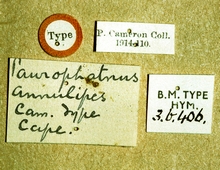 Type
P. Cameron Coll.
1914-110.
Taurophatnus
Annulipes
Cam. Type
Cape.
B.M. TYPE
HYM.
3.b.406.